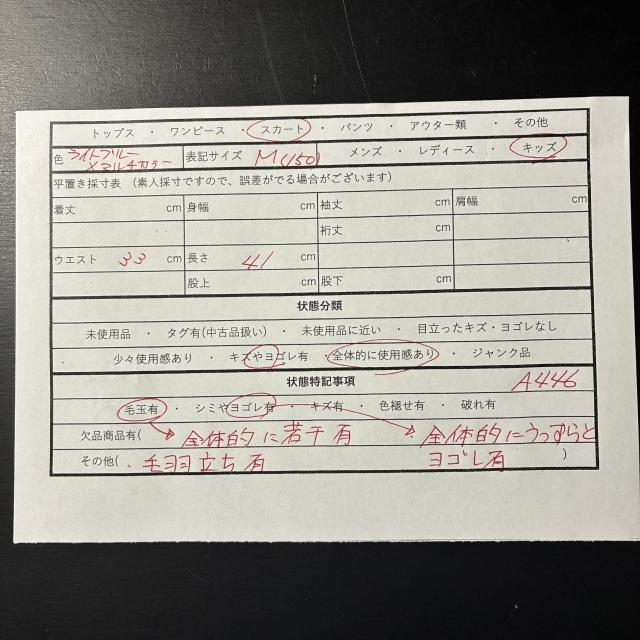 トップス ・ ワンピース ・ スカート ・ パンツ ・ アウター類 ・ その他
色 ライトブルー×マルチカラー 表記サイズ M(150) メンズ ・ レディース ・ キッズ
平置き採寸表 (素人採寸ですので、誤差がでる場合がございます)
着丈 cm 身幅 cm 袖丈 cm 肩幅 cm
裄丈 cm
ウエスト 33 cm 長さ 41 cm
股上 cm 股下 cm
状態分類
未使用品 ・ タグ有(中古品扱い) ・ 未使用品に近い ・ 目立ったキズ・ヨゴレなし
少々使用感あり ・ キズやヨゴレ有 ・ 全体的に使用感あり ・ ジャンク品
状態特記事項 A446
毛玉有 ・ シミやヨゴレ有 ・ キズ有 ・ 色褪せ有 ・ 破れ有
欠品商品有( 全体的に若干有 全体的にうっすらと
その他( 、毛羽立ち有 ヨゴレ有 )